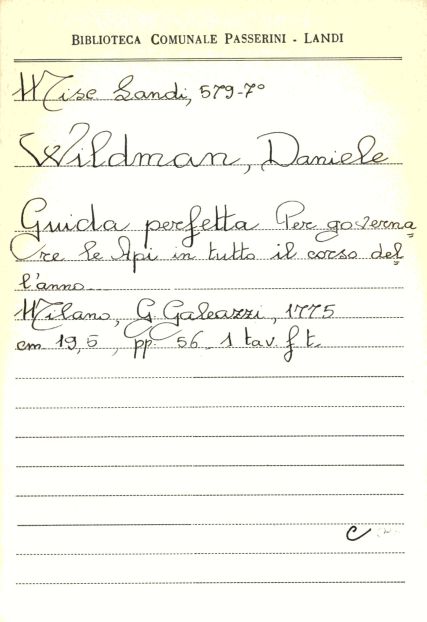 BIBLIOTECA COMUNALE PASSERINI - LANDI
Misc Landi, 579-7°
Wildman, Daniele
Guida perfetta Per governa=
re le Api in tutto il corso del=
l'anno
Milano, G. Galeazzi, 1775
cm 19,5, pp. 56 - 1 tav. f t.
C